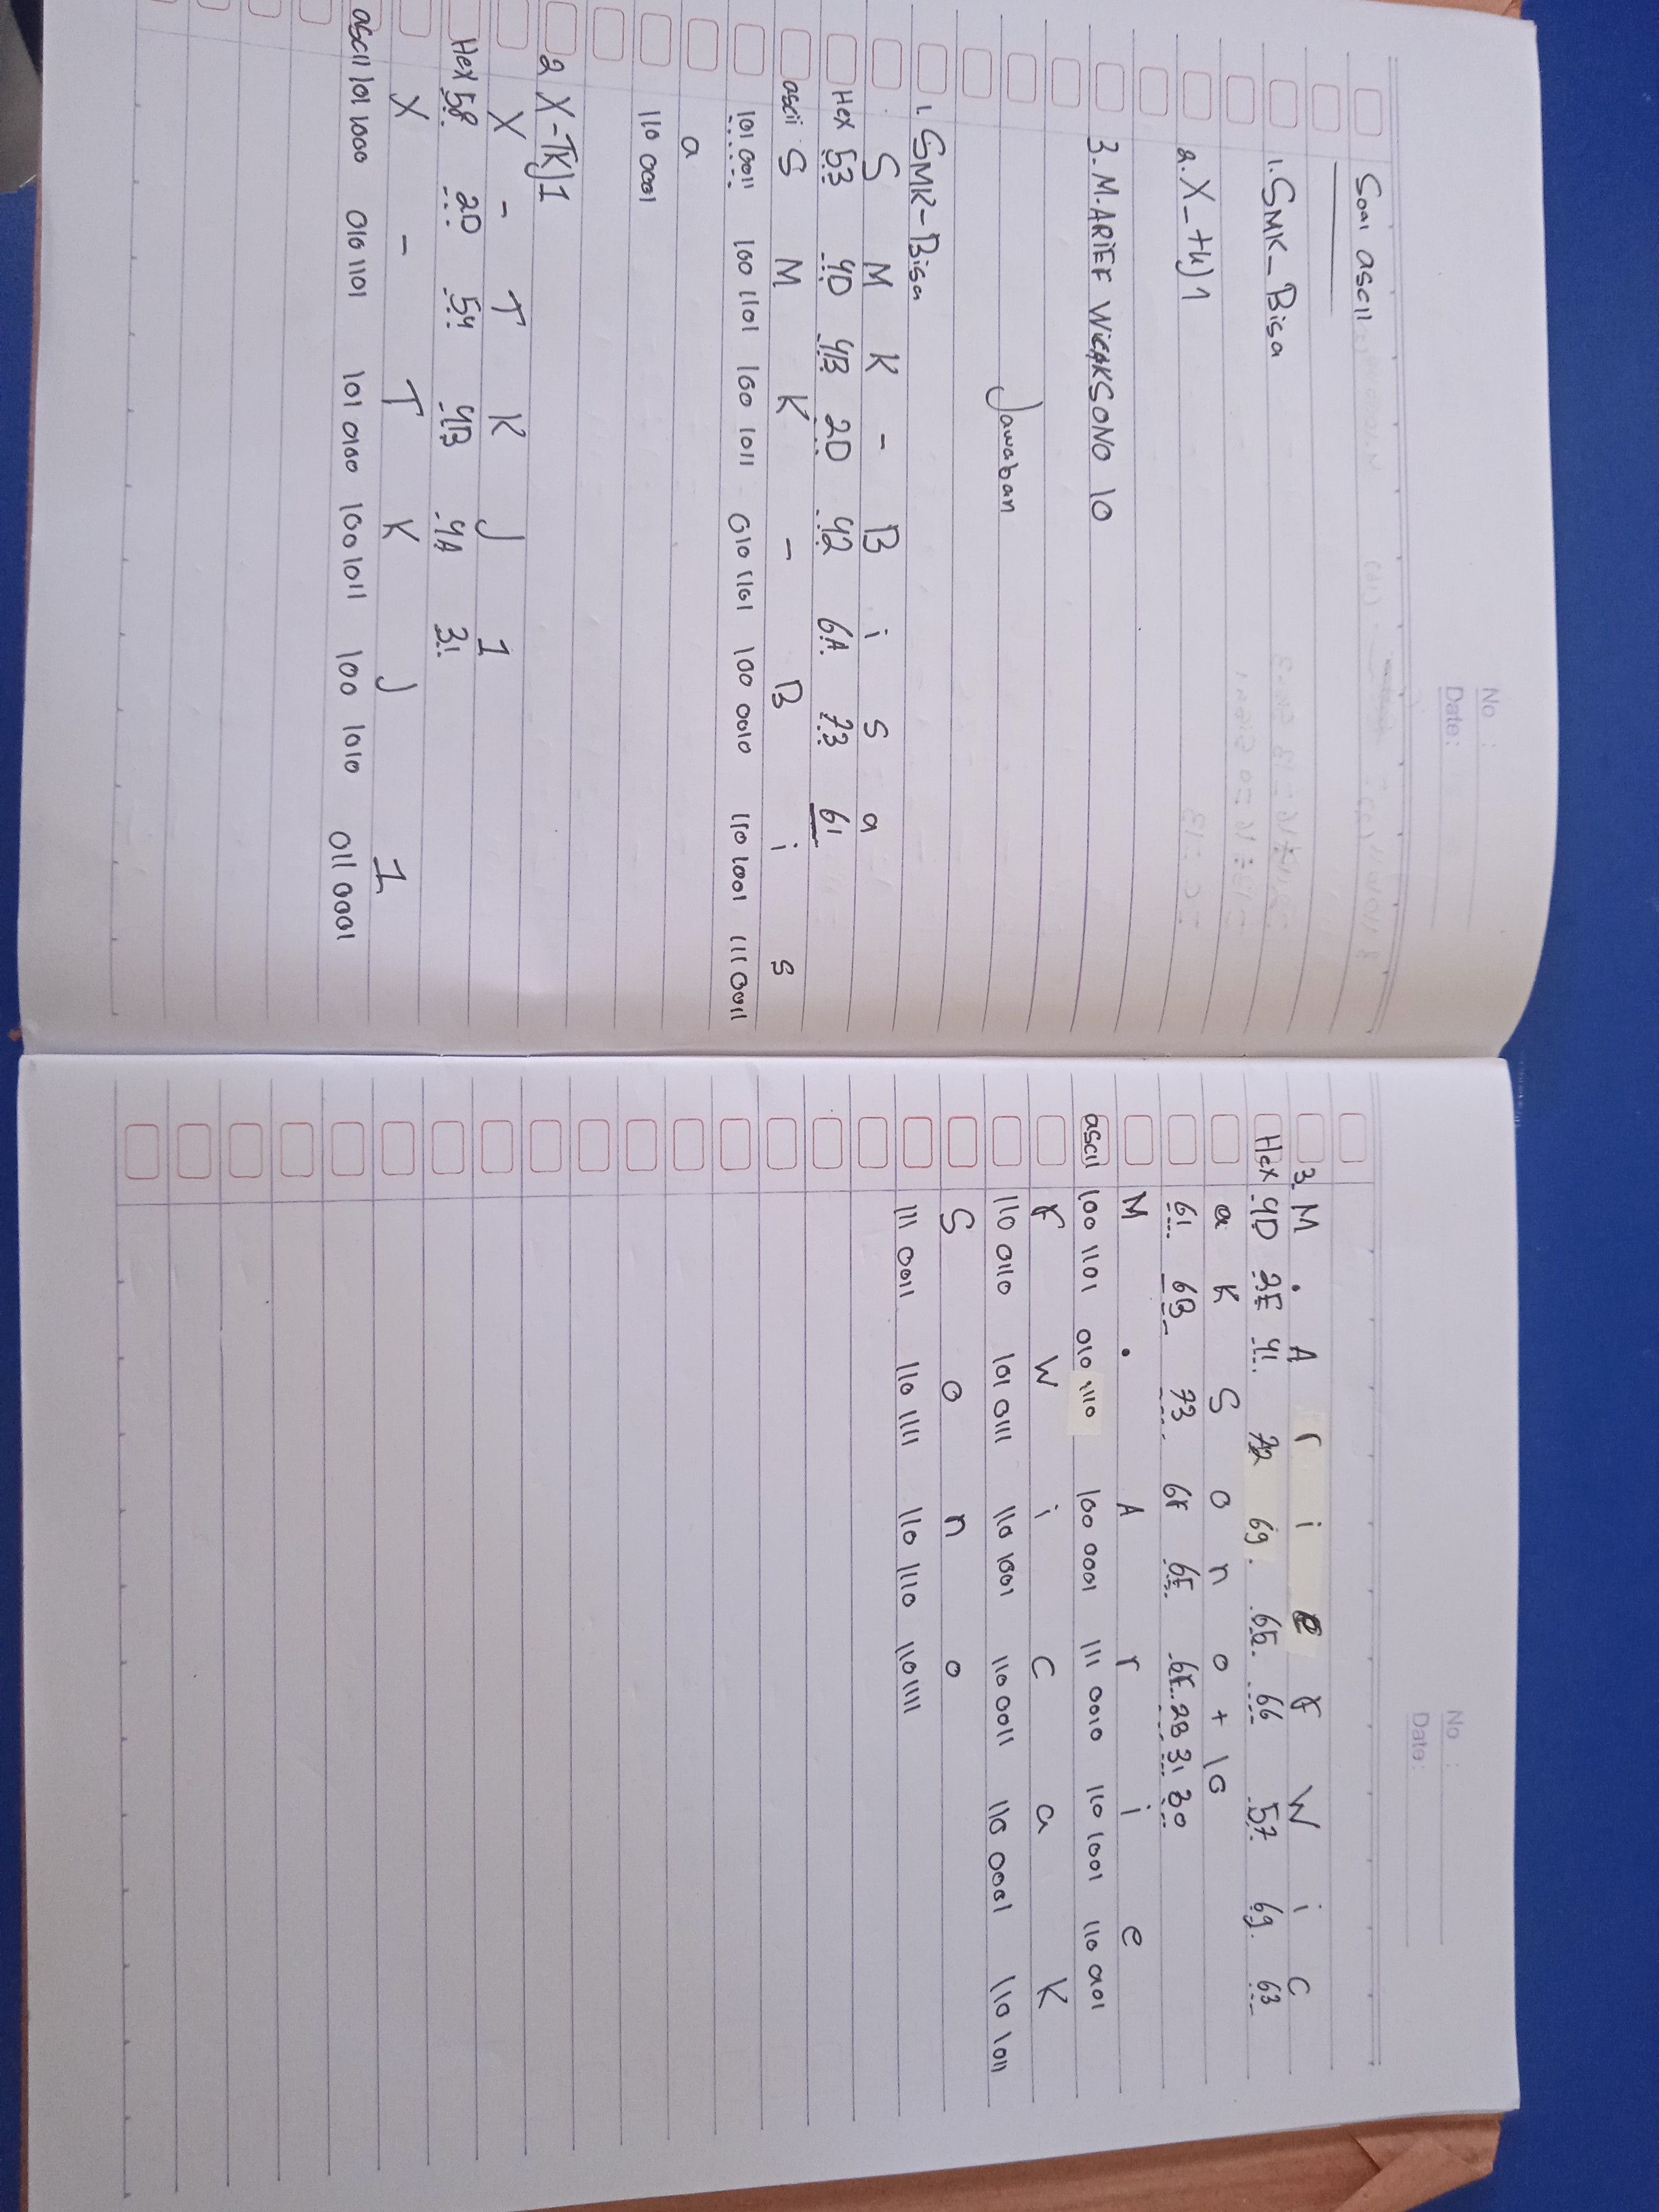 No :
Date:
Soal ascii
1. SMK-Bisa
2. X-tkj 1
3. M. ARiEF WiCAKSONO 10
Jawaban
1. SMK-Bisa
S M K - B i s a
Hex 53 4D 4B 2D 42 6A 73 61
ascii S M K - B i s
101 0011 100 1101 100 1011 010 1101 100 0010 110 1001 111 0011
a
110 0001
2 X-TKJ 1
X - T K J 1
Hex 58 2D 54 4B 4A 31
X - T K J 1
ascii 101 1000 010 1101 101 0100 100 1011 100 1010 011 0001
No :
Date:
3. M . A r i e F W i C
Hex 4D 2E 41 72 69 65 66 57 69 63
a K S o n o + 10
61 6B 73 6F 6E 6F 2B 31 30
M . A r i e
ascii 100 1101 010 1110 100 0001 111 0010 110 1001 110 001
F W i C a K
110 0110 101 0111 110 1001 110 0011 110 0001 110 1011
S o n o
111 0011 110 1111 110 1110 110 1111